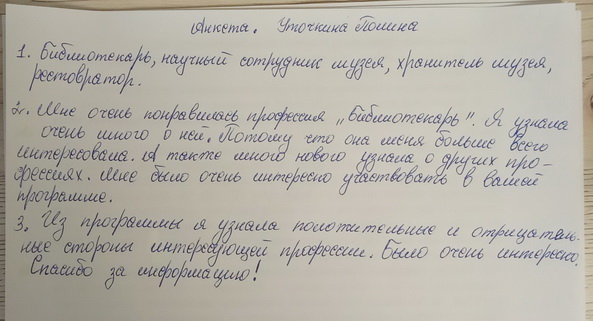 Анкета. Уточкина Полина
1. Библиотекарь, научный сотрудник музея, хранитель музея,
рестовратор.
2. Мне очень понравилась профессия „Библиотекарь". Я узнала
очень много о ней. Потому что она меня больше всего
интересовала. А также много нового узнала о других про-
фессиях. Мне было очень интересно участвовать в вашей
программе.
3. Из программы я узнала положительные и отрицатель-
ные стороны интересующей профессии. Было очень интересно.
Спасибо за информацию!